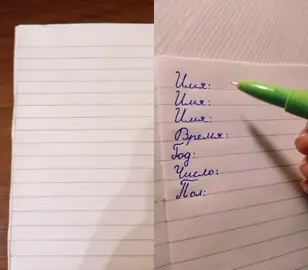 Имя:
Имя:
Имя:
Время:
Год:
Число:
Пол: